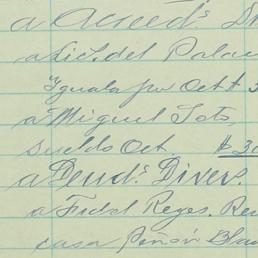 a Acreeds
a Lic. del Palac
Iguala por Oct $ 3
a Miguel Soto
sueldo Oct. $ 30
a Deuds. Divers.
a Fidel Reyes. Re
casa Peñón Blan